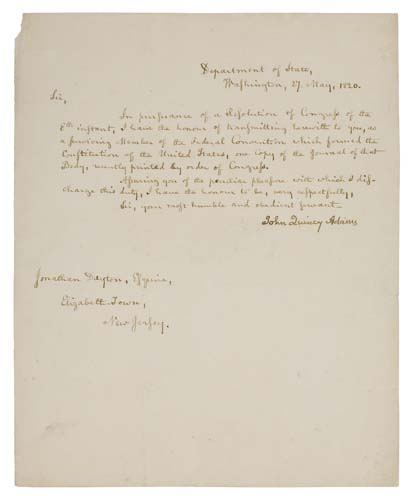 Department of State,
Washington, 27. May, 1820.
Sir,
In pursuance of a Resolution of Congress of the
8th instant, I have the honour of transmitting herewith to you, as
a surviving Member of the Federal Convention which formed the
Constitution of the United States, one copy of the Journal of that
Body, recently printed by order of Congress.
Assuring you of the peculiar pleasure with which I dis-
charge this duty, I have the honour to be, very respectfully,
Sir, your most humble and obedient servant
John Quincy Adams
Jonathan Dayton, Esquire,
Elizabeth-Town,
New Jersey.